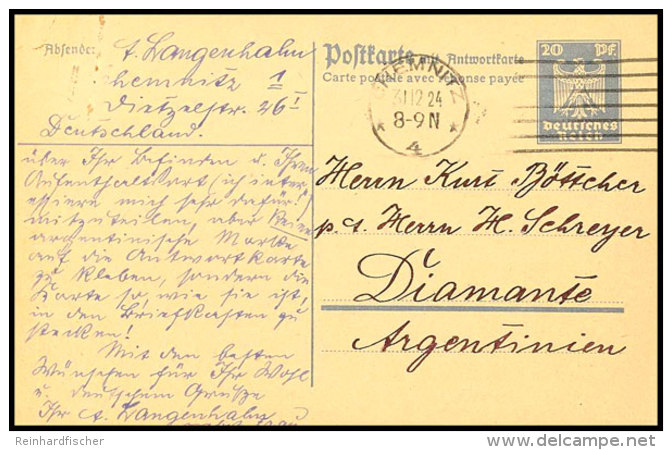 Absender: A. Langenhahn
Chemnitz 1
Dietzelstr. 26 I
Deutschland.
über Ihr Befinden u. Ihren
Aufenthaltsort (ich inter-
essiere mich sehr dafür!)
mitzuteilen, aber keine
argentinische Marke
auf die Antwortkarte
zu kleben, sondern die
Karte so, wie sie ist,
in den Briefkasten zu
stecken!
Mit den besten
Wünschen für Ihr Wohl
u. deutschem Grusse
Ihr A. Langenhahn
Postkarte mit Antwortkarte
Carte postale avec réponse payée
CHEMNITZ
31.12.24
8-9N
* 4 *
20 PF
Deutsches
Reich
Herrn Kurt Böttcher
p. a. Herrn H. Schreyer
Diamante
Argentinien
Reinhardfischer
www.delcampe.net